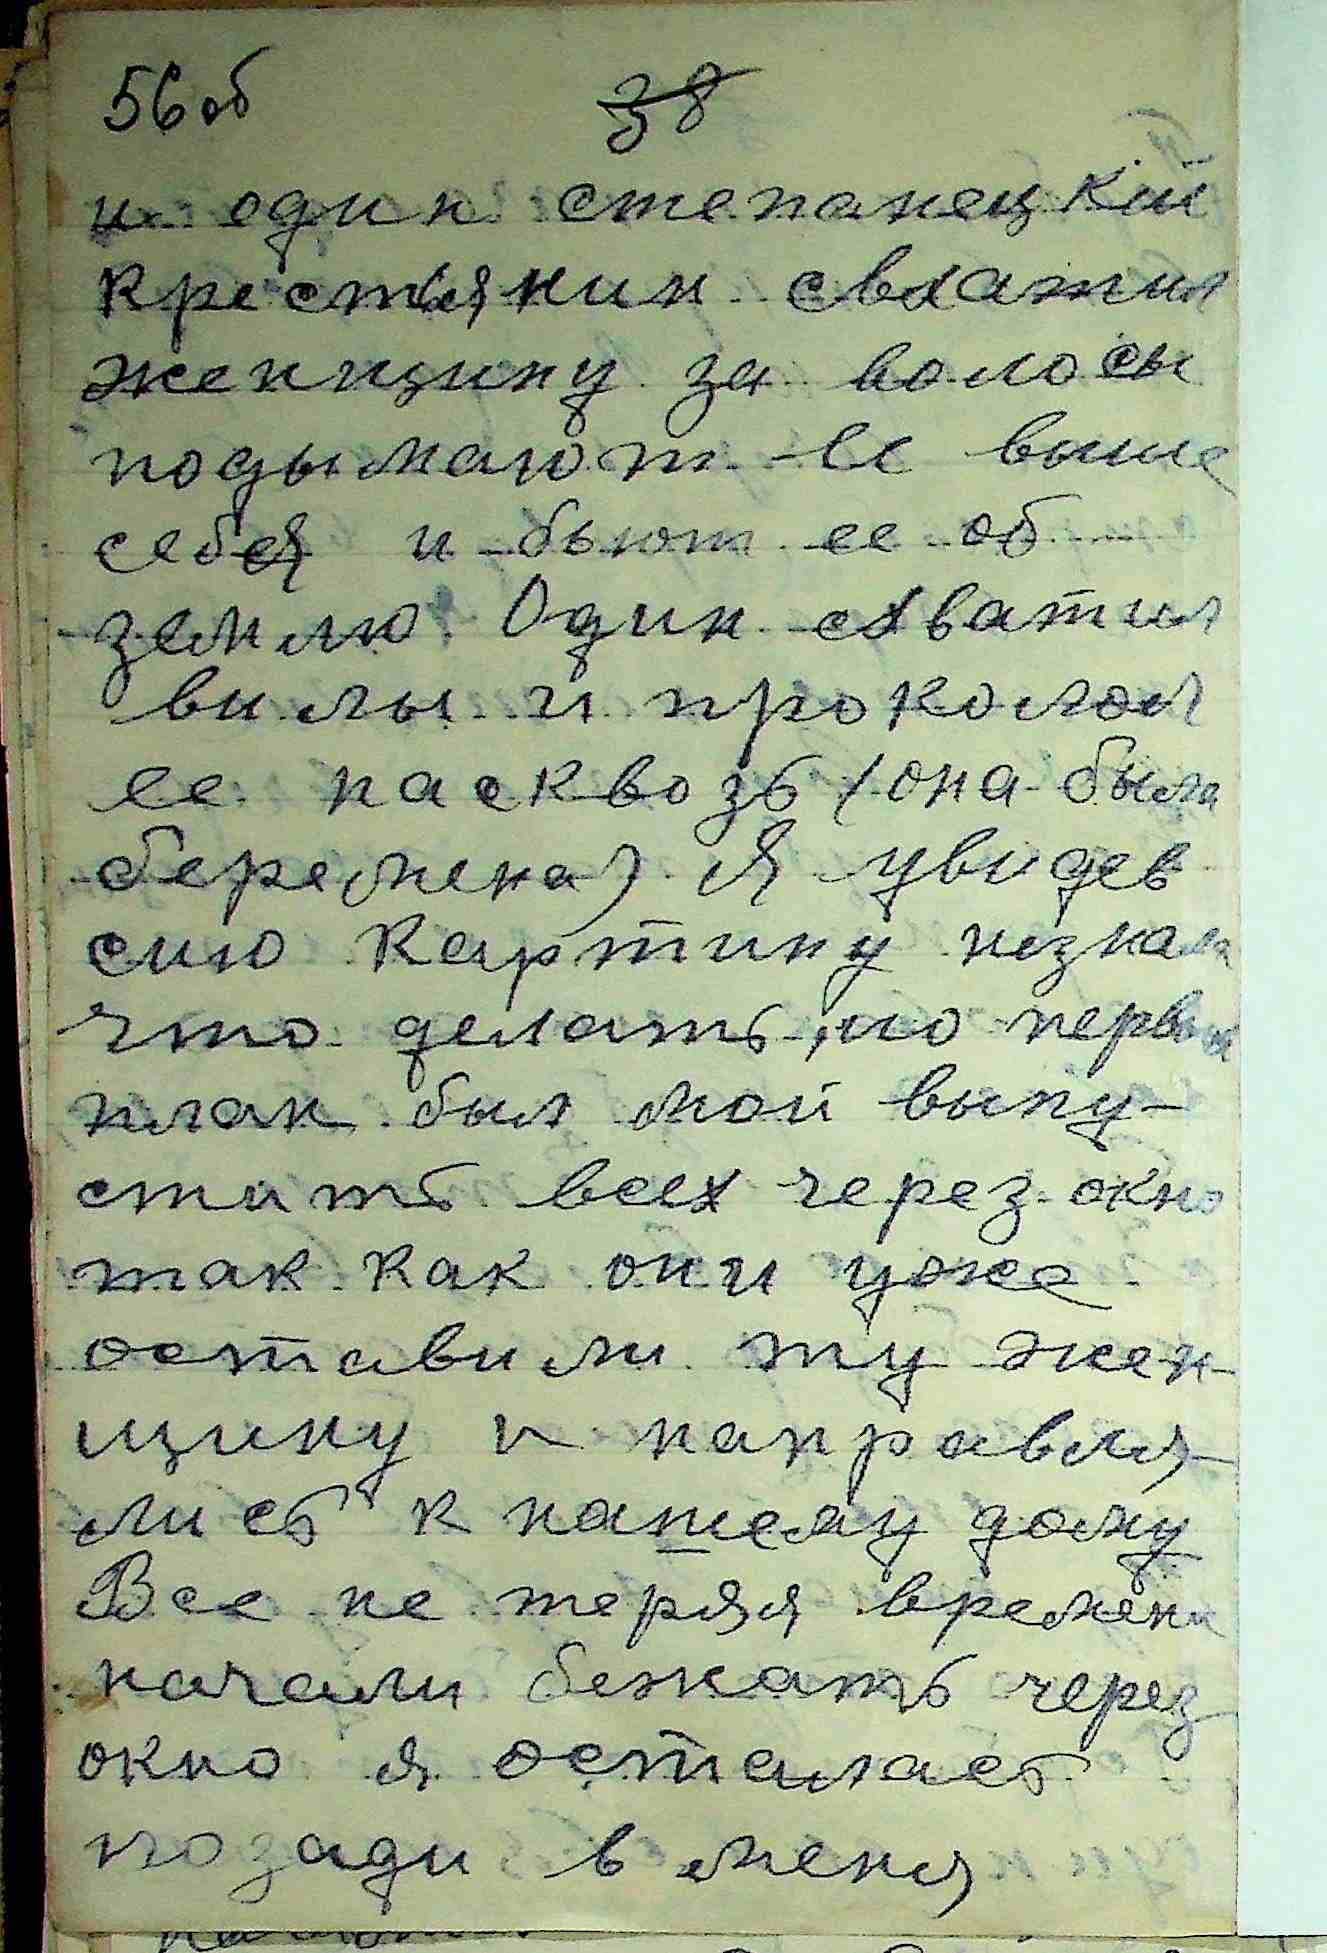 56об 38
и один степанецкий
крестьянин свхатил
женщину за волосы
подымают ее выше
себя и бьют ее об
землю. Один схватил
вилы и проколол
ее насквозь (она была
беремена) я увидев
сию картину незнала
что делать, но первый
план был мой выпу-
стить всех через окно
так как они уже
оставили ту жен-
щину и направля-
лись к нашему дому
Все не теряя времени
начали бежать через
окно я осталась
позади в меня